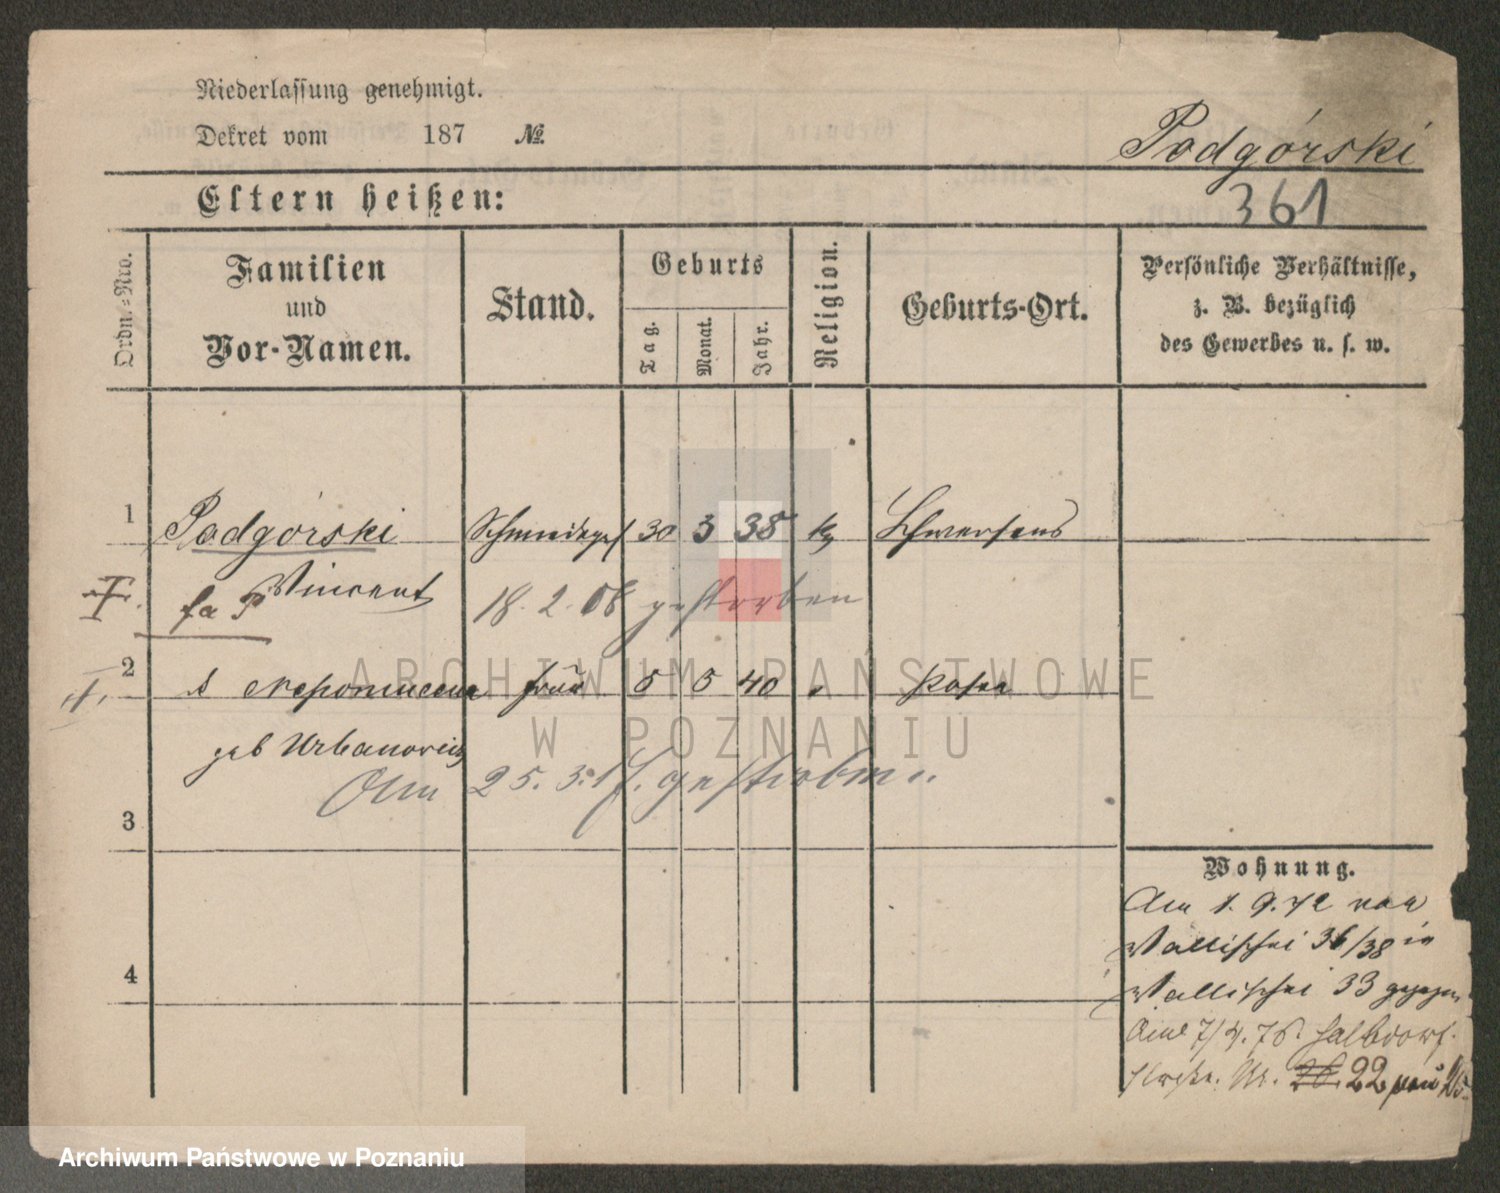 Niederlassung genehmigt.
Dekret vom 187 №
Podgórski
Eltern heißen:
361
Ordn.-Nro.
Familien
und
Vor-Namen.
Stand.
Geburts
Tag.
Monat.
Jahr.
Religion.
Geburts-Ort.
Persönliche Verhältnisse,
z. B. bezüglich
des Gewerbes u. s. w.
1 Podgórski Schmiedeges 30 3 38 kg Schwersenz
Vincent
fa P
18. 2. 08 gestorben
2 Nepomucena frau 5 5 40 " Posen
geb Urbanowicz
Am 25. 3. gestorben
3
4
Wohnung.
Am 1. 9. 72 von
Wallischei 36/38 in
Wallischei 33 gezogen
7/4. 76. Halbdorf-
Nr. 26. 22
ARCHIWUM PAŃSTWOWE
W POZNANIU
Archiwum Państwowe w Poznaniu